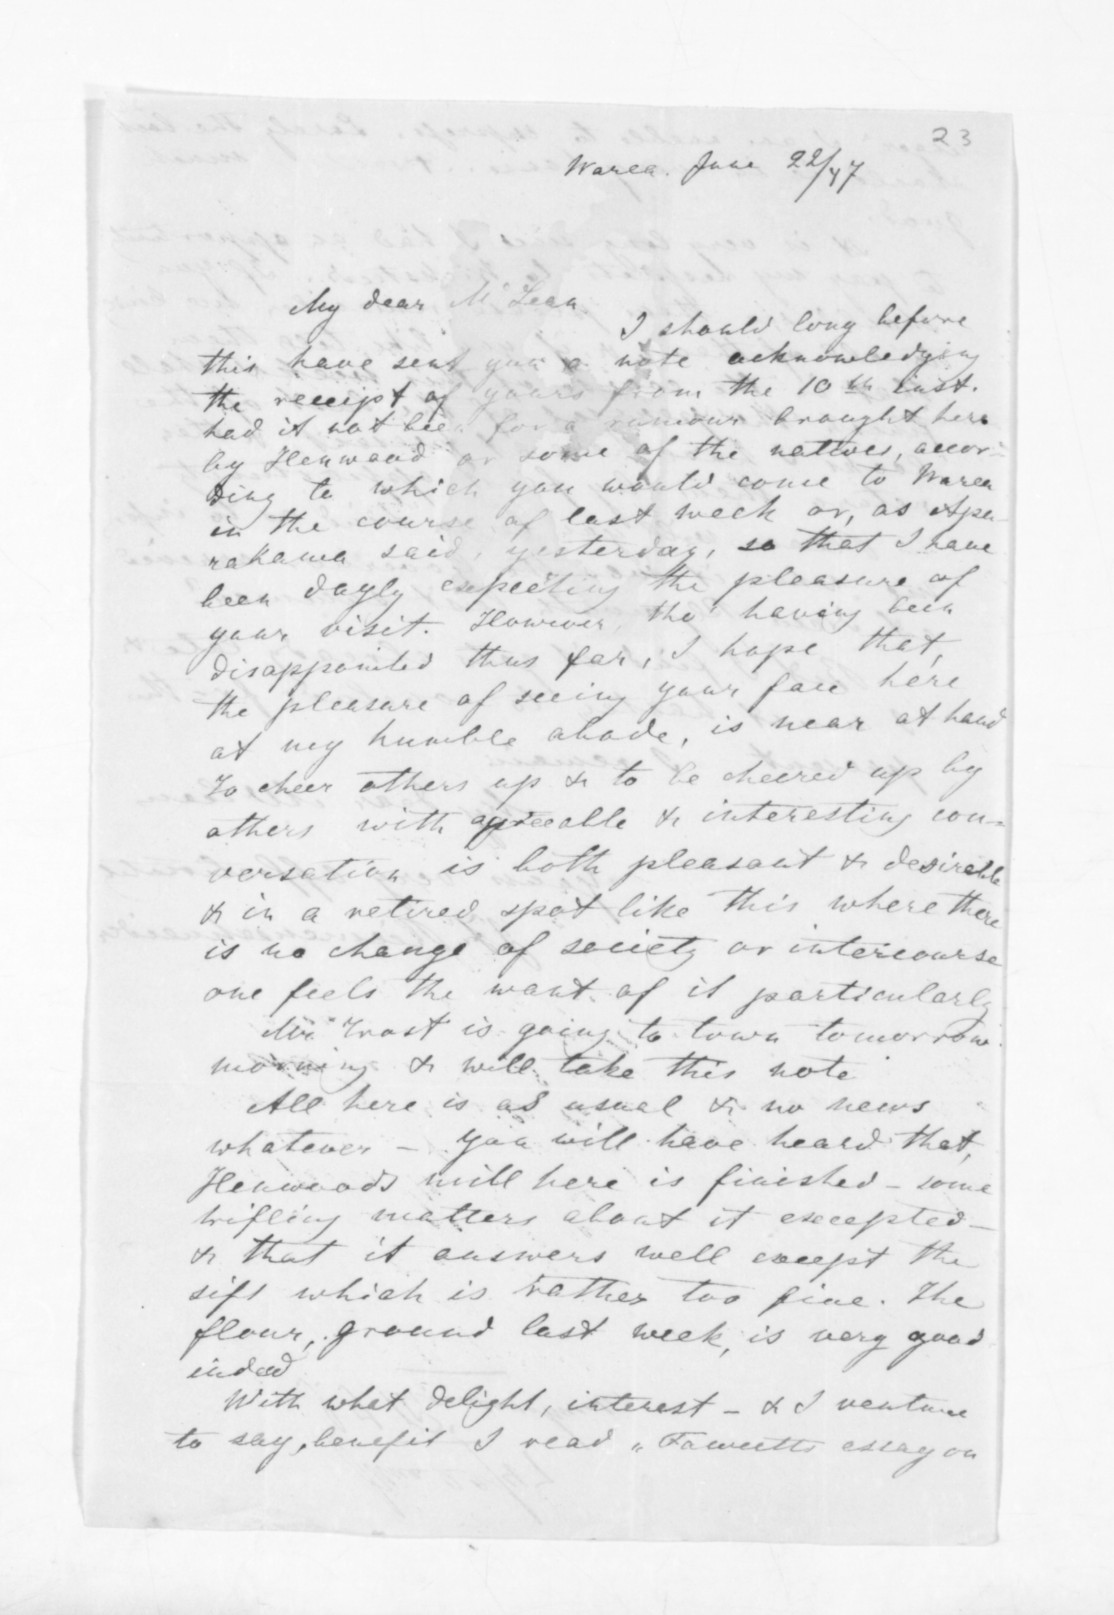 23
Warea. June 22/47
My dear McLean.
I should long before
this have sent you a note acknowledging
the receipt of yours from the 10th inst.
had it not been for a rumour brought here
by Henwood or some of the natives, accor-
ding to which you would come to Warea
in the course of last week or, as Apa-
rahama said, yesterday, so that I have
been dayly expecting the pleasure of
your visit. However, tho' having been
disappointed thus far, I hope that,
the pleasure of seeing your face here
at my humble abode, is near at hand
To cheer others up & to be cheered up by
others with agreeable & interesting con-
versation is both pleasant & desirable
& in a retired spot like this where there
is no change of society or intercourse
one feels the want of it particularly
Mr Trost is going to town tomorrow
morning & will take this note
All here is as usual & no news
whatever - You will have heard that,
Henwoods mill here is finished - some
trifling matters about it excepted -
& that it answers well except the
sift which is rather too fine. The
flour, ground last week, is very good
indeed
With what delight, interest - & I venture
to say, benefit I read "Fawcetts essay on